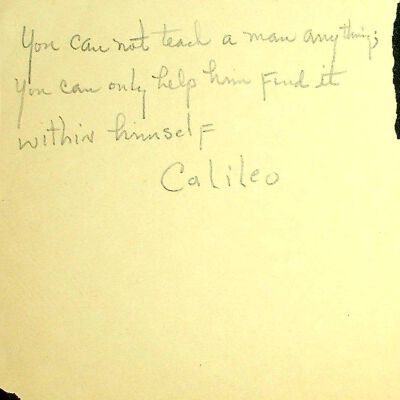 You can not teach a man anything;
you can only help him find it
within himself
Calileo